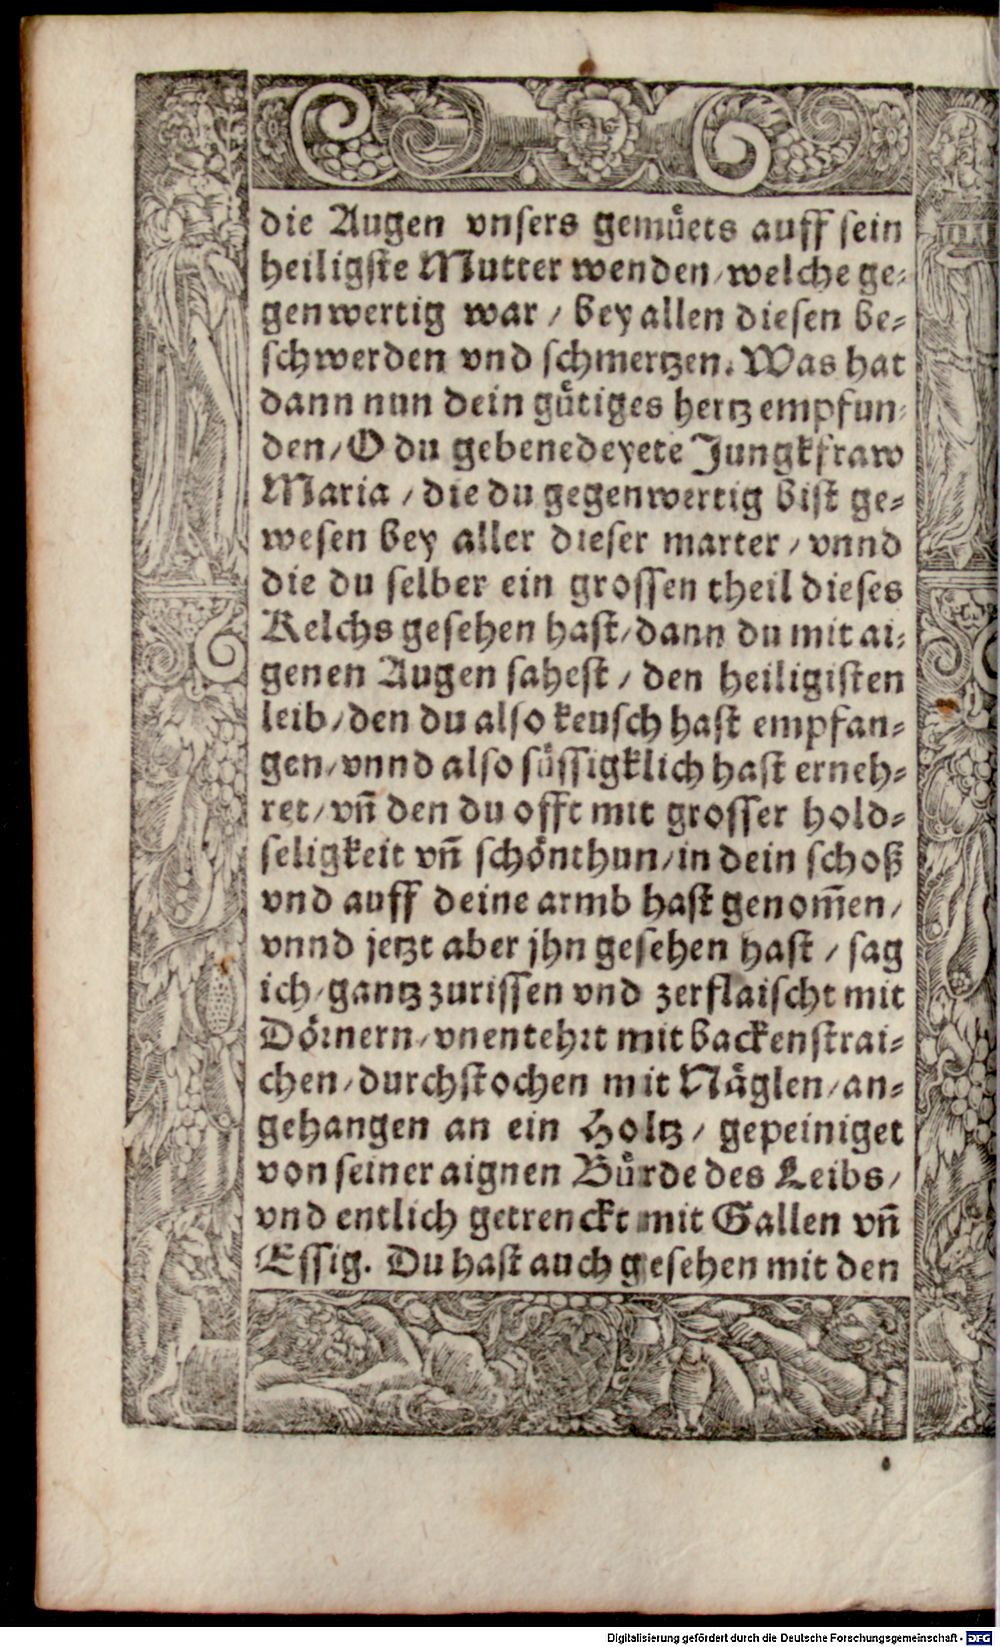 die Augen vnsers gemuͤets auff sein
heiligste Mutter wenden/welche ge⸗
genwertig war / bey allen diesen be⸗
schwerden vnd schmertzen. Was hat
dann nun dein guͤtiges hertz empfun⸗
den/O du gebenedeyete Jungkfraw
Maria / die du gegenwertig bist ge⸗
wesen bey aller dieser marter / vnnd
die du selber ein grossen theil dieses
Kelchs gesehen hast/dann du mit ai⸗
genen Augen sahest / den heiligisten
leib/den du also keusch hast empfan⸗
gen/vnnd also suͤssigklich hast erneh⸗
ret/vn̄ den du offt mit grosser hold⸗
seligkeit vn̄ schoͤnthun/in dein schoß
vnd auff deine armb hast genom̄en/
vnnd jetzt aber jhn gesehen hast / sag
ich/gantz zurissen vnd zerflaischt mit
Doͤrnern/vnentehrt mit backenstrai⸗
chen/durchstochen mit Naͤglen/an⸗
gehangen an ein Holtz / gepeiniget
von seiner aignen Buͤrde des Leibs/
vnd entlich getrenckt mit Gallen vn̄
Essig. Du hast auch gesehen mit den
Digitalisierung gefördert durch die Deutsche Forschungsgemeinschaft - DFG